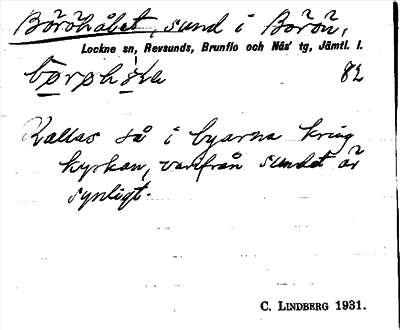 Böröhålet, sund i Börön,
Lockne sn, Revsunds, Brunflo och Näs' tg, Jämtl. l.
82
Kallas så i byarna kring
kyrkan, varifrån sundet är
synligt.
C. LINDBERG 1931.